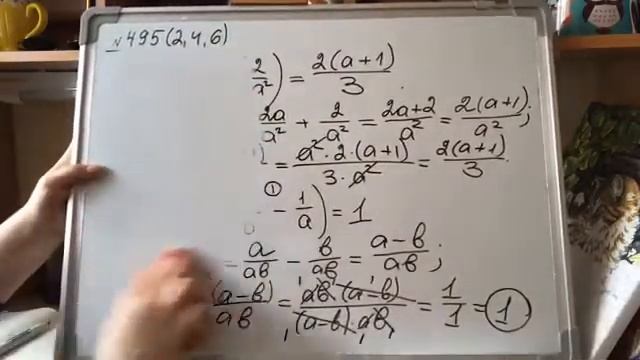 №495(2,4,6)
2/a²) = 2(a+1)/3
2a/a² + 2/a² = 2a+2/a² = 2(a+1)/a²;
= a²·2·(a+1)/3·a² = 2(a+1)/3
① - 1/a) = 1
- a/aв - в/aв = a-в/aв;
(a-в)/aв = aв·(a-в)/(a-в)·aв = 1/1 = 1